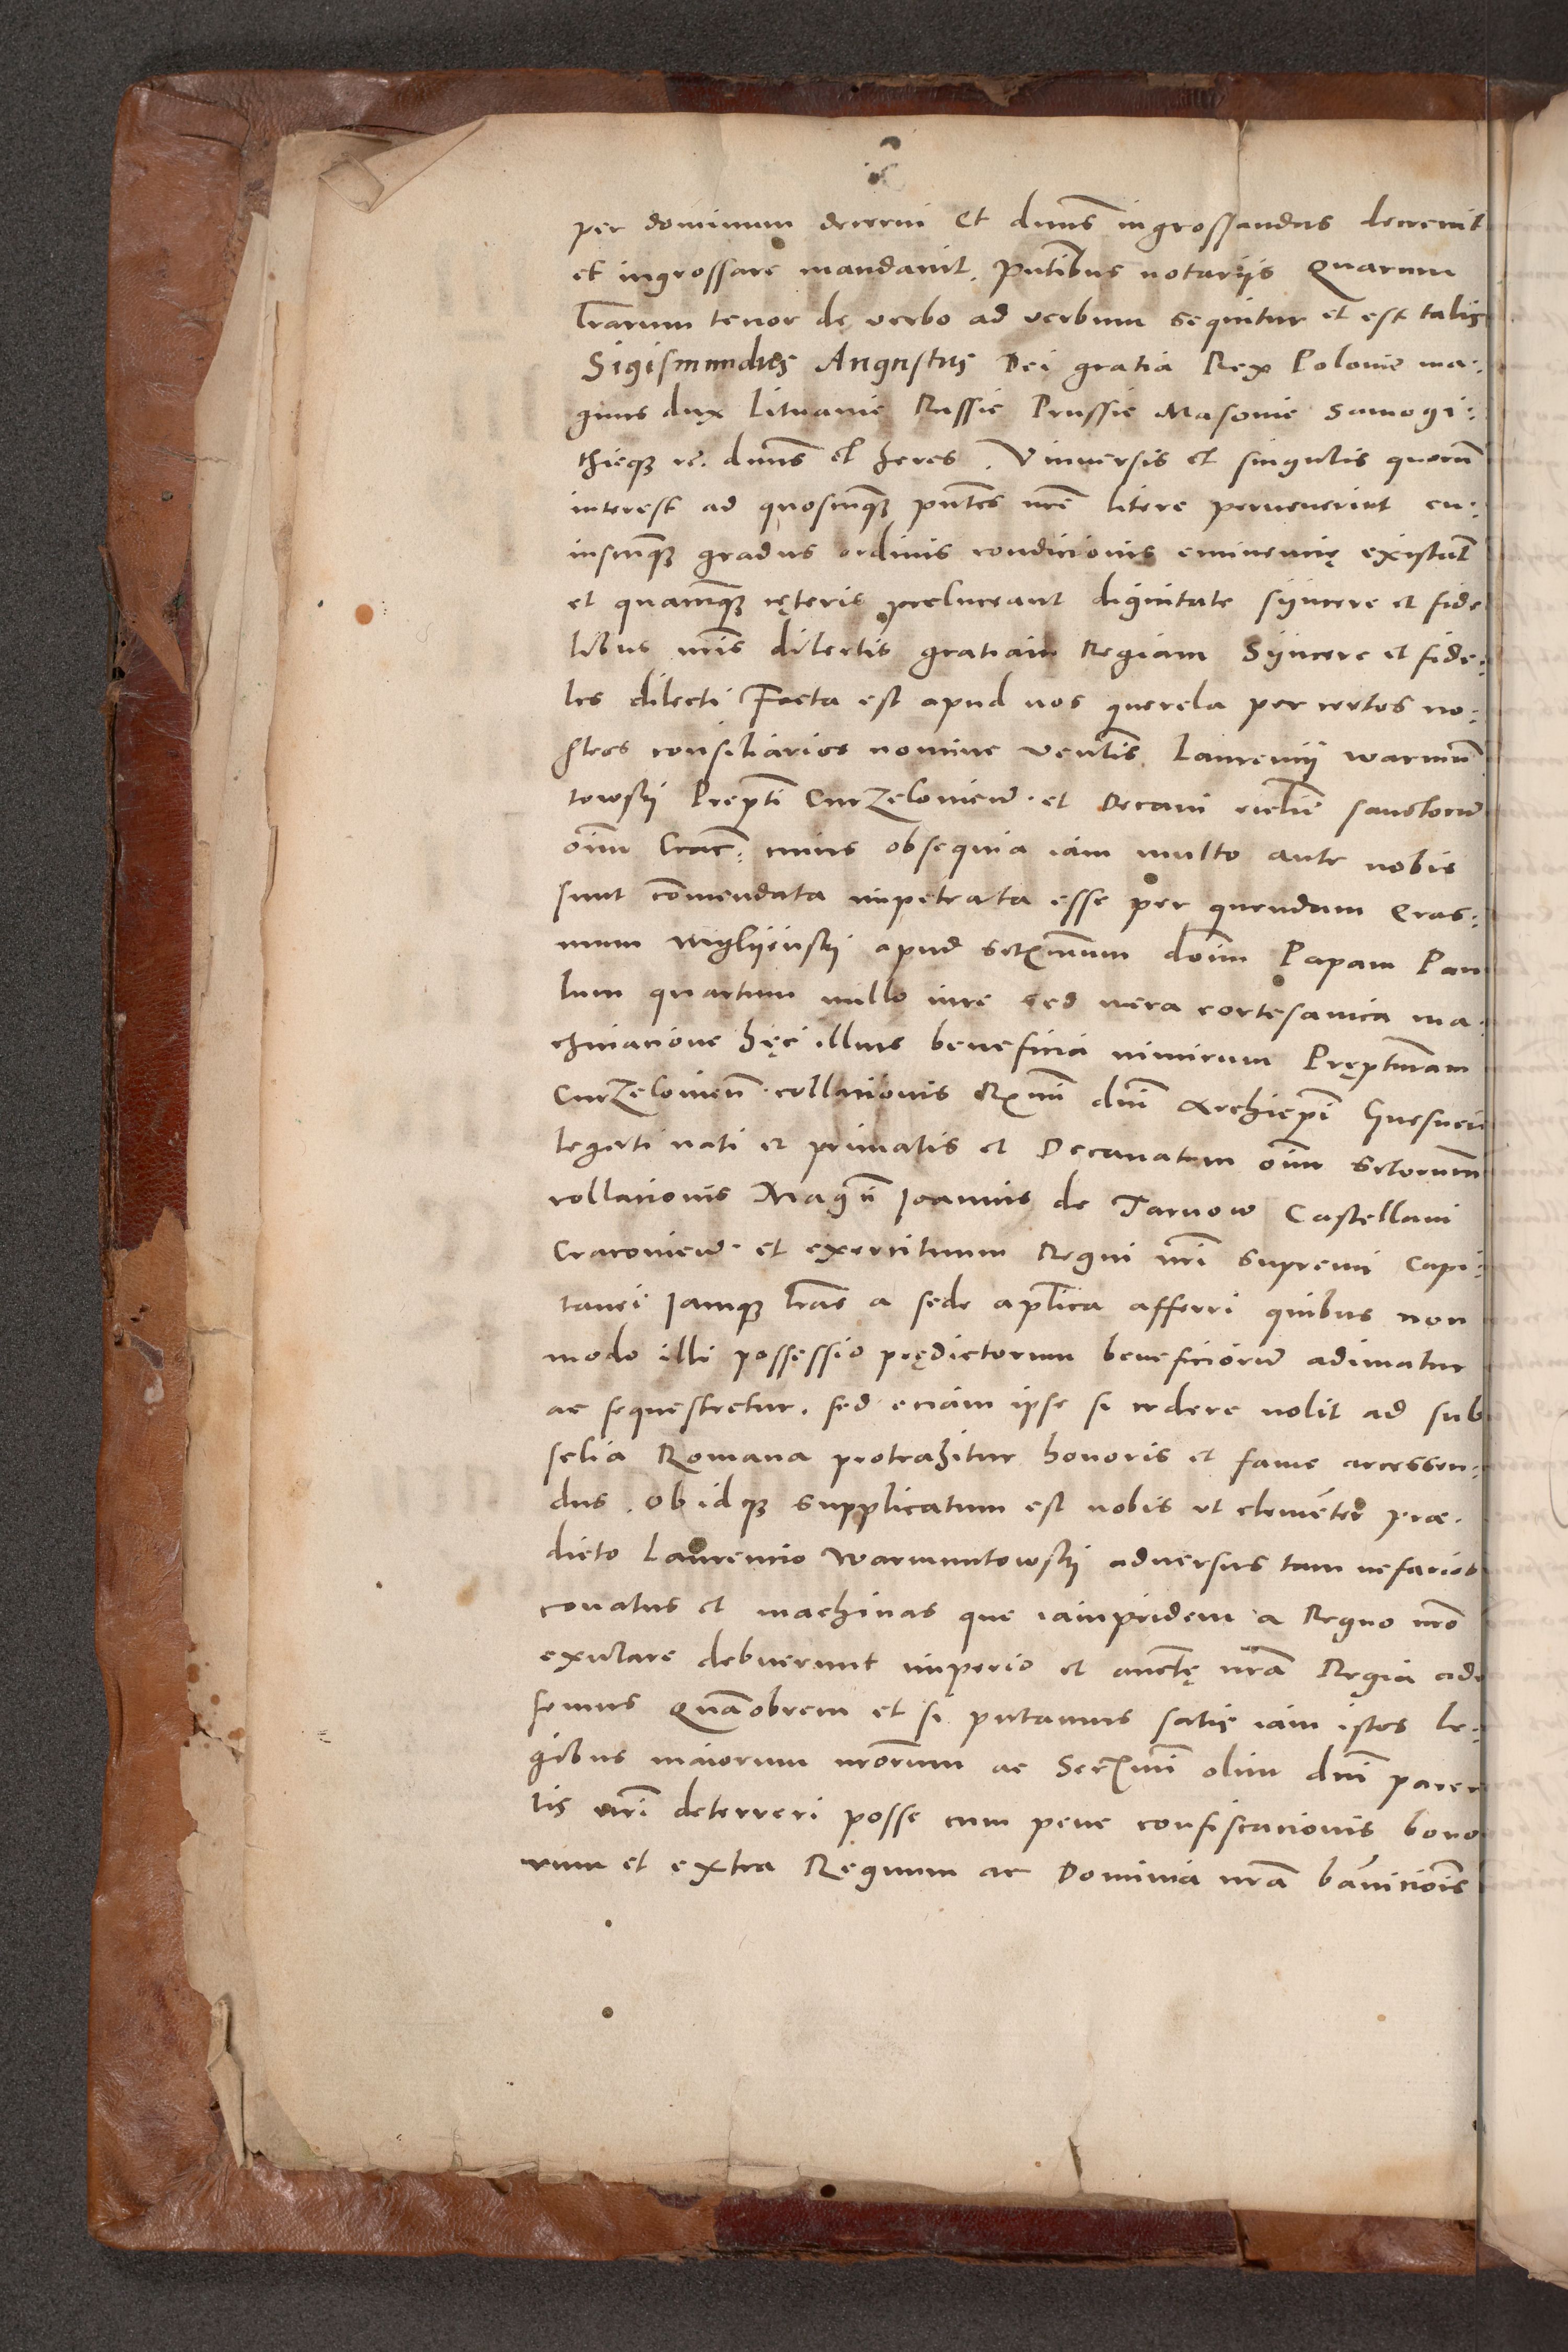 per dominum decerni Et dnus ingrossandas decrevit
et ingrossare mandavit. pntibus notariis Quarum
lrarum tenor de verbo ad verbum sequitur et est talis
Sigismundus Augustus Dei gratia Rex Polonie ma:
gnus dux Lituanie Russie Prussie Masovie Samogi:
thieque dnus et heres. Universis et singulis quorum
interest ad quoscunque pntes nre litere pervenerint cu:
iuscunque gradus ordinis condicionis eminencię existant
et quacunque cęteris preluceant dignitate syncere et fide
libus nris dilectis gratiam Regiam Syncere et fide:
les dilecti Facta est apud nos querela per certos no:
stros consiliarios nomine Laurencij warmun
towskj Prepti Curzeloviens. et Decani sanctorum
oium Crac: cuius obsequia iam multo ante nobis
sunt comendata impetrata esse per quendam Eras:
mum apud doim Papam Pau
lum quartum nullo iure sed mera cortesanica ma:
chinacione hęc illius beneficia nimirum Pręptram
Curzelovien. collacionis Rxmi dni Archiepi Gnesnen
legati nati et primatis et Decanatum oium sctorum
collacionis Magci Joannis de Tarnow Castellani
Cracoviens. et exercituum Regni nri supremi Capi:
tanei Jamque lras a sede aplica afferri quibus non
modo illi possessio prędictorum beneficiorum adimatur
ac sequestretur. sed eciam ipse si cedere nolit ad sub
selia Romana protrahitur honoris et fame arcessen:
dus. Ob idque supplicatum est nobis ut clementer præ.
dicto Laurencio warmuntowskj adversus tam nefarios
conatus et machinas que iampridem a Regno nro
exulare debuerunt imperio et aucte nra Regia ade
semus Quaobrem et si putamus satis iam istos le:
gibus maiorum nrorum ac Serxmi olim dni paren
tis nri deterreri posse cum pene confiscacionis bono
rum et extra Regnum ac Dominia nra bannicionis